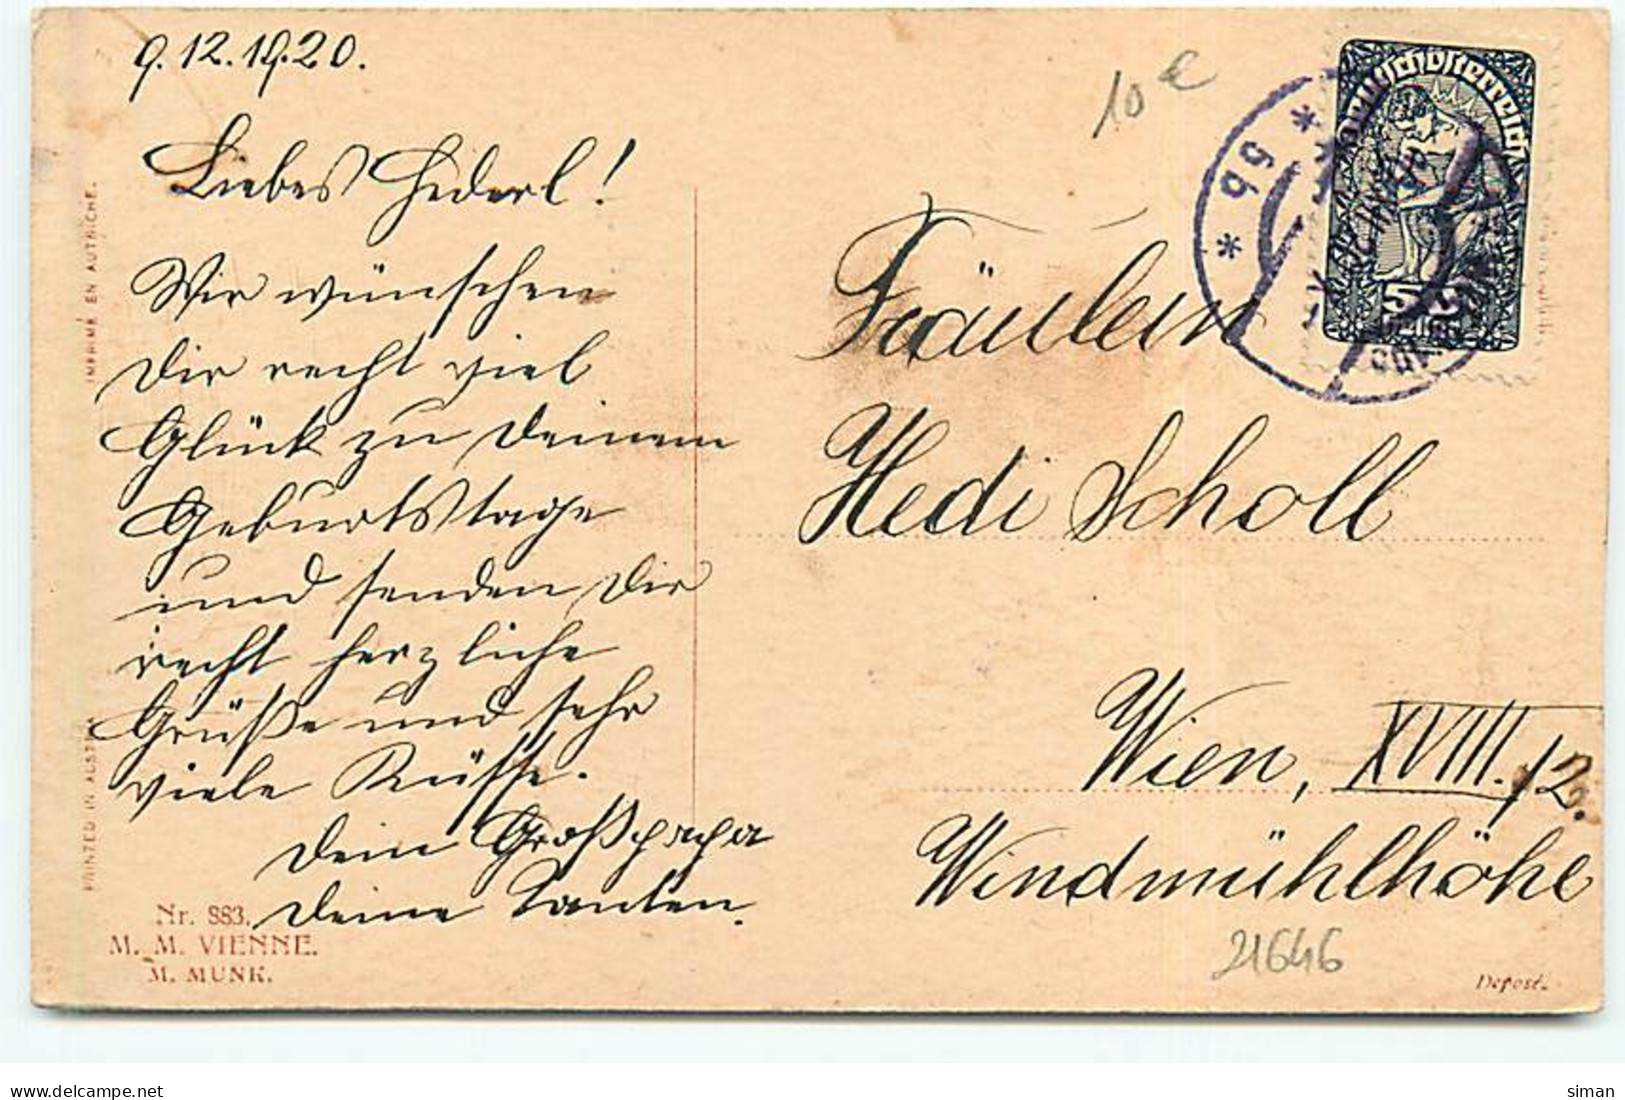 9.12.1920.
Liebes Hederl!
Wir wünschen
Dir recht viel
Glück zu Deinem
Geburtstage
und senden Dir
recht herzliche
Grüße und sehr
viele Küsse.
Dein Großpapa
Deine Tanten.
10 €
Deutschösterreich
* 6 b *
Fräulein
Hedi Scholl
Wien, XVIII./2.
Windmühlhöhe
21646
IMPRIMÉ EN AUTRICHE.
PRINTED IN AUSTRIA
Nr. 883.
M. M. VIENNE.
M. MUNK.
Deposé.
delcampe.net
siman